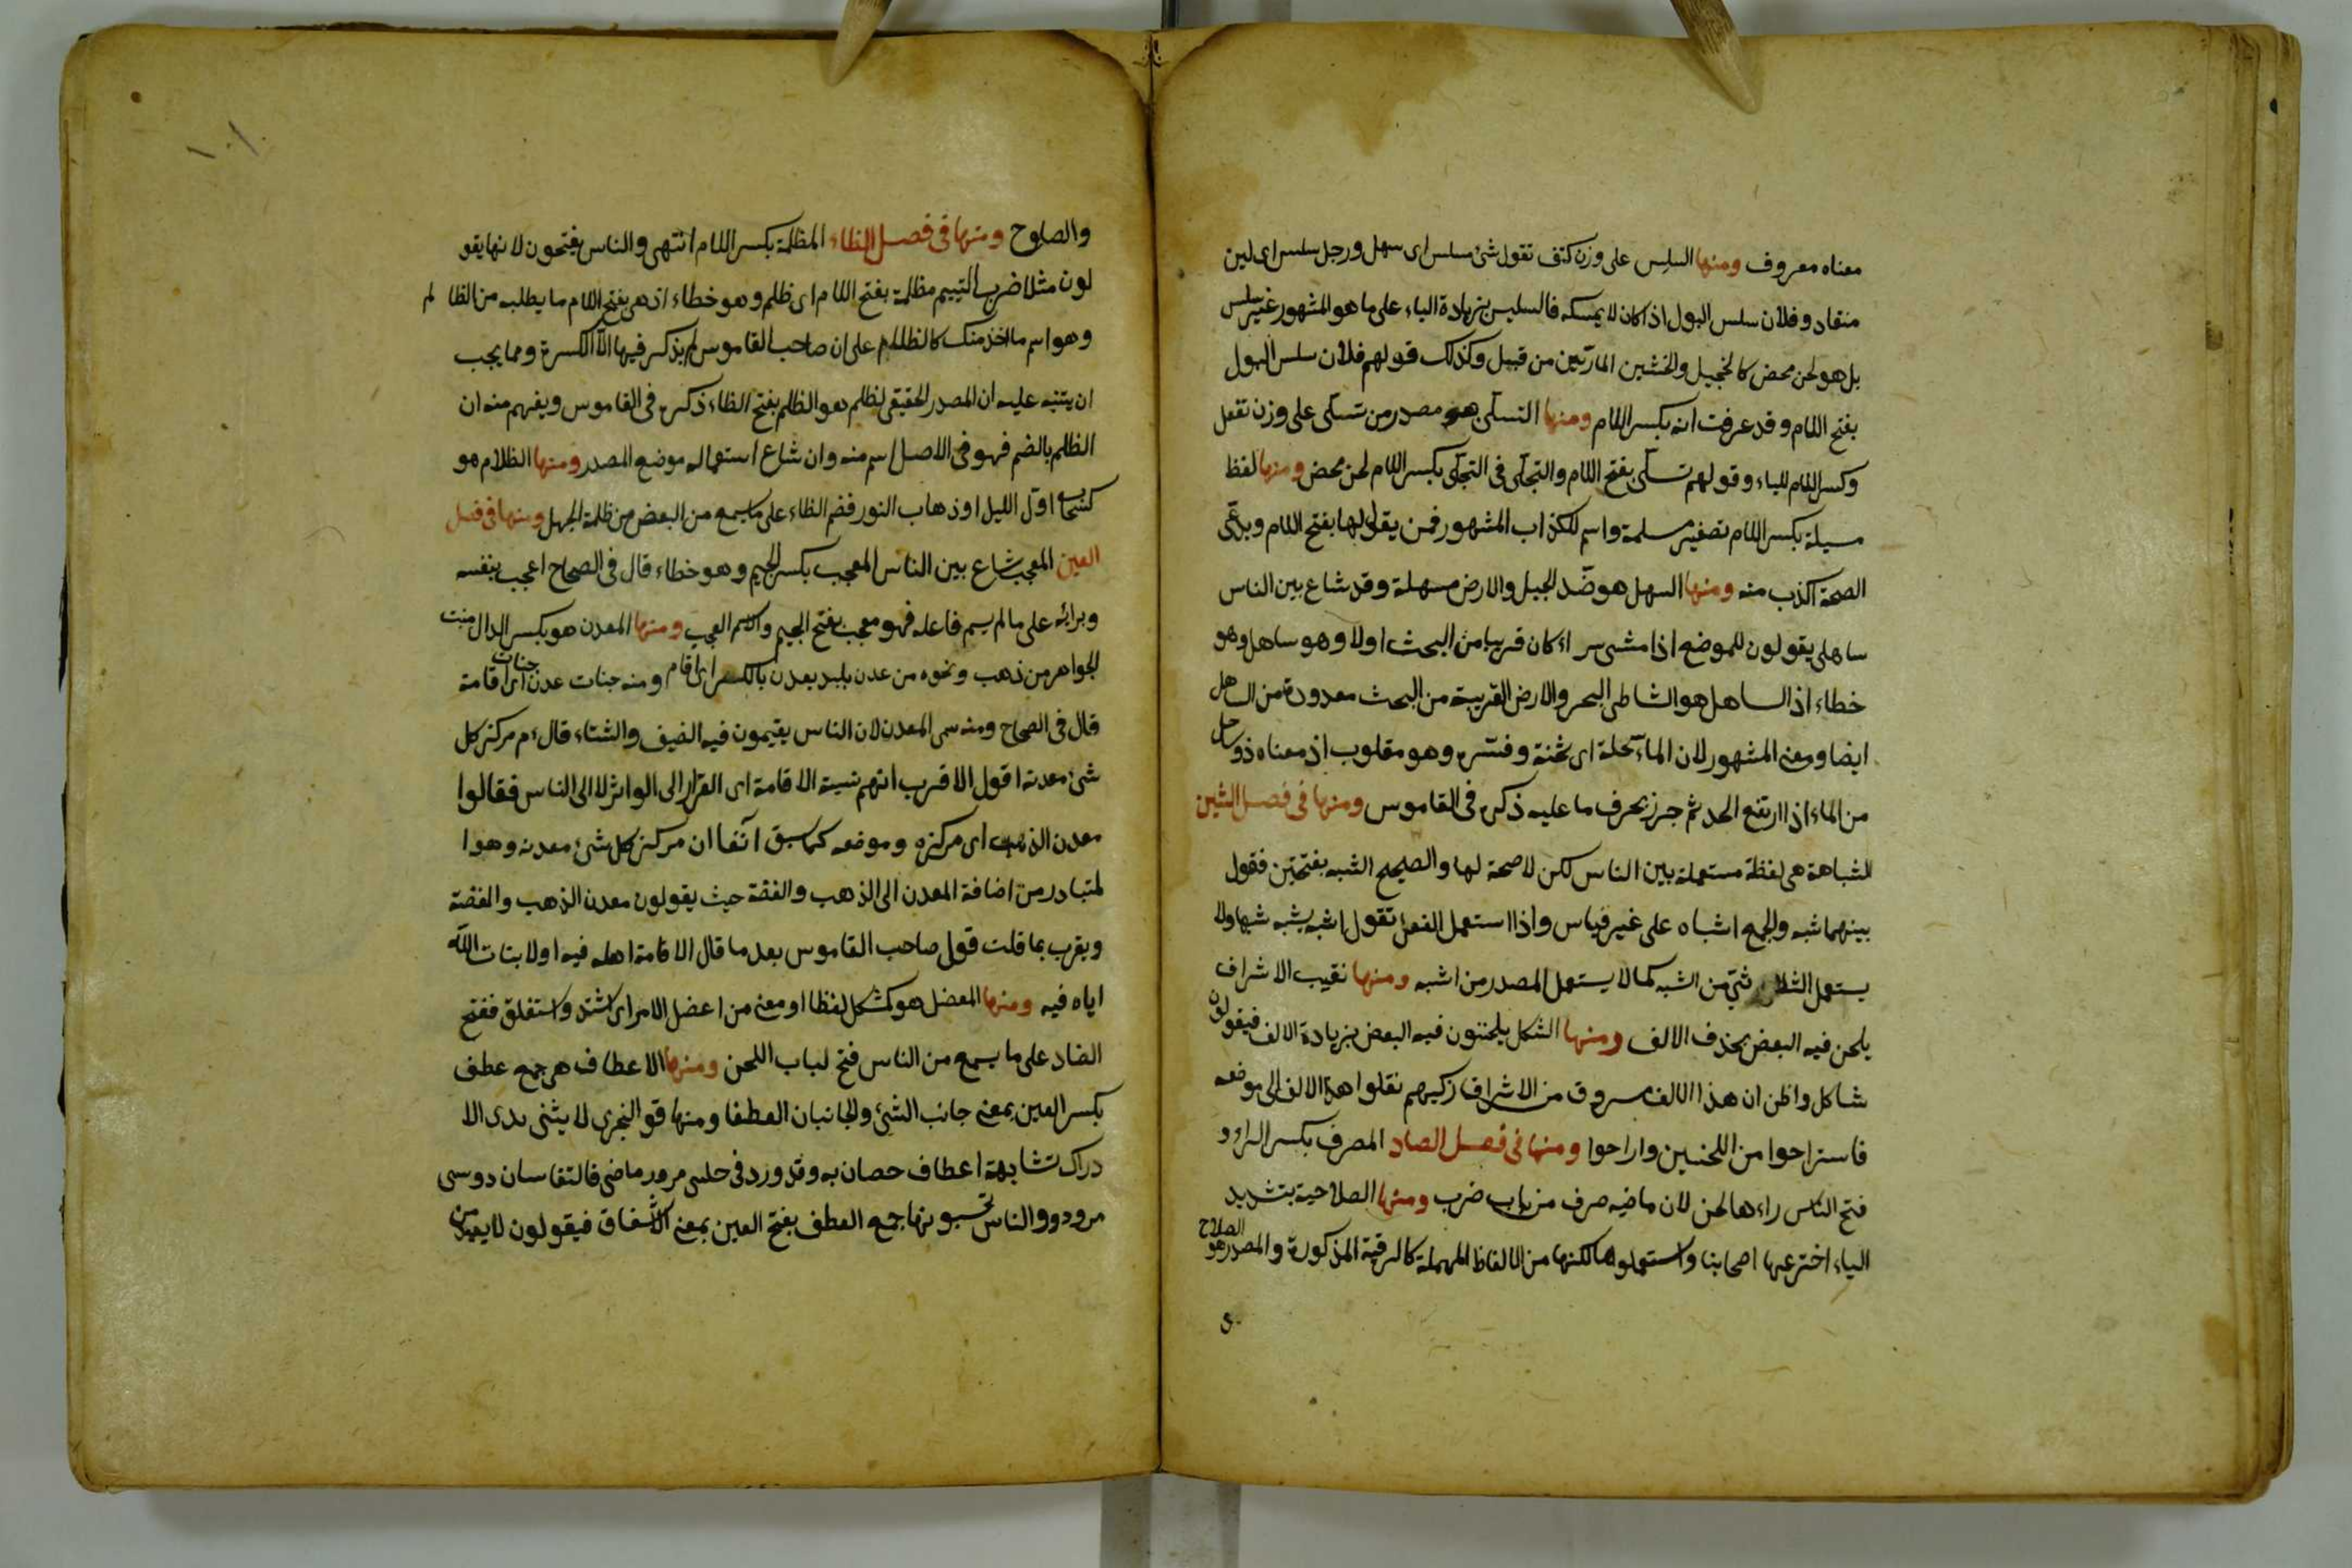 معناه معروف ومنها السلس على وزن كتف تقول شئ سلس اى سهل ورجل سلس اى لين
منقاد وفلان سلس البول اذا كان لا يمسكه فالسليس بزيادة الياء على ما هو المشهور غير سلس
بل هو لحن محض كالخجيل والخشين المارتين من قبيل وكذلك قولهم فلان سلس البول
بفتح اللام وقد عرفت انه بكسر اللام ومنها التسلى هو مصدر من تسلى على وزن تفعل
وكسر اللام للياء وقولهم تسلى بفتح اللام والتجلى فى التجلى بكسر اللام لحن محض ومنها لفظ
مسيلمة بكسر اللام تصغير مسلمة واسم للكذاب المشهور فمن يقول لها بفتح اللام ويدعى
الصحة اكذب منه ومنها السهل هو ضد الجبل والارض سهلة وقد شاع بين الناس
ساهلى يقولون للموضع اذا مشى سراء كان قريبا من البحث اولا وهو ساهل وهو
خطاء اذ الساهل هو الشاطى البحر والارض القريبة من البحث معدودة من الساهل
ايضا ومعنى المشهور لان الماء سحلة اى نحته وقشره وهو مقلوب اذ معناه ذو ساحل
من الماء اذا ارتفع المد ثم جزر بحرف ما عليه ذكره فى القاموس ومنها فى فصل الشين
الشباهة هى لفظة مستعملة بين الناس لكن لا صحة لها والصحيح الشبه بفتحتين فقول
بينهما شبه والجمع اشباه على غير قياس واذا استعمل الفعل تقول اشبه يشبه شبها ولا
يستعمل الثلاثى من الشبه كما لا يستعمل المصدر من اشبه ومنها نقيب الاشراف
يلحن فيه البعض بحذف الالف ومنها الشكل يلحنون فيه البعض بزيادة الالف فيقولون
شاكل واظن ان هذا الالف مسروق من الاشراف زكيهم نقلوا هذا الالف الى موضعه
فاستراحوا من اللحنين واراحوا ومنها فى فصل الصاد المصرف بكسر الراء و
فتح الناس راءها لحن لان ماضيه صرف من باب ضرب ومنها الصلاحية بتشديد
الياء اخترعها اصحابنا واستعملوها لكنها من الالفاظ المهملة كالرقية المذكورة والمصدر هو الصلاح
١٠١
والصلوح ومنها فى فصل الظاء المظلمة بكسر اللام انتهى والناس يفتحون لانها يقو
لون مثلا ضرب اليتيم مظلمة بفتح اللام اى ظلم وهو خطاء اذ هى بفتح اللام ما يطلبه من الظا لم
وهو اسم ما اخذ منك كالظلام على ان صاحب القاموس لم يذكر فيها الا الكسرة ومما يجب
ان يتنبه عليه ان المصدر الحقيقى لظلم هو الظلم بفتح الظاء ذكره فى القاموس ويفهم منه ان
الظلم بالضم فهو فى الاصل اسم منه وان شاع استعماله موضع المصدر ومنها الظلام هو
كسحاب اول الليل او ذهاب النور فضم الظاء على ما يسمع من البعض من ظلمة الجهل ومنها فى فصل
العين المعجب شاع بين الناس المعجب بكسر الجيم وهو خطاء قال فى الصحاح اعجب بنفسه
وبرايه على ما لم يسم فاعله فهو معجب بفتح الجيم والاسم العجب ومنها المعدن هو بكسر الدال منبت
الجواهر من ذهب ونحوه من عدن بلبد يعدن بالكسر اى اقام ومنه جنات عدن اى جنات اقامة
قال فى الصحاح ومنه سمى المعدن لان الناس يقيمون فيه الصيف والشتاء قال ءم مركز كل
شئ معدنه اقول الاقرب انهم نسبة الاقامة اى القرار الى الوا لا الى الناس فقالوا
معدن الذهب اى مركزه وموضعه كما سبق آنفا ان مركز كل شئ معدنه وهو ا
لمتبادر من اضافة المعدن الى الذهب والفضة حيث يقولون معدن الذهب والفضة
ويقرب بما قلت قول صاحب القاموس بعد ما قال الاقامة اهله فيه اولا بنات الله
اياه فيه ومنها المعضل هو كمشكل لفظا او معنى من اعضل الامر اى اشتد واستغلق ففتح
الضاد على ما يسمع من الناس فتح لباب اللحن ومنها الاعطاف هى جمع عطف
بكسر العين بمعنى جانب الشئ والجانبان العطفا ومنها قو النجرى لا يثنى يدى الا
دراك تشابهة اعطاف حصان به وقد ورد فى حلسى مرور ماضى فالتفاسان دوسى
مرودوو الناس تحسبونها جمع العطف بفتح العين بمعنى الاشفاق فيقولون لا يعيد من